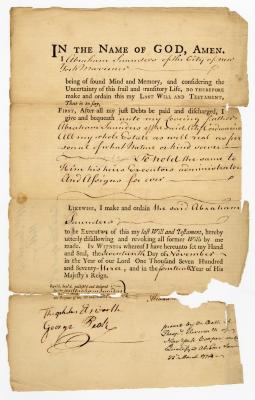 IN THE NAME OF GOD, AMEN.
I Abraham Saunders of the City of New
York Mariner
being of sound Mind and Memory, and considering the
Uncertainty of this frail and transitory Life, DO THEREFORE
make and ordain this my LAST WILL AND TESTAMENT,
That is to say,
FIRST, After all my just Debts be paid and discharged, I
give and bequeath unto my loving Father
Abraham Saunders of the said
All my whole Estate as well real as per
sonal of what Nature or kind soever
To hold the same to
Him his heirs Executors administrators
And Assigns for ever
LIKEWISE, I make and ordain the said Abraham
Saunders
to be EXECUTOR of this my last Will and Testament, hereby
utterly disallowing and revoking all former Wills by me
made. IN WITNESS whereof I have hereunto set my Hand
and Seal, the Seventeenth Day of November
in the Year of our Lord One Thousand Seven Hundred
and Seventy-three, and in the fourteenth Year of His
Majesty's Reign.
Signed, sealed, published and declared
Theophilus Elsworth
George Peek
New York
1774